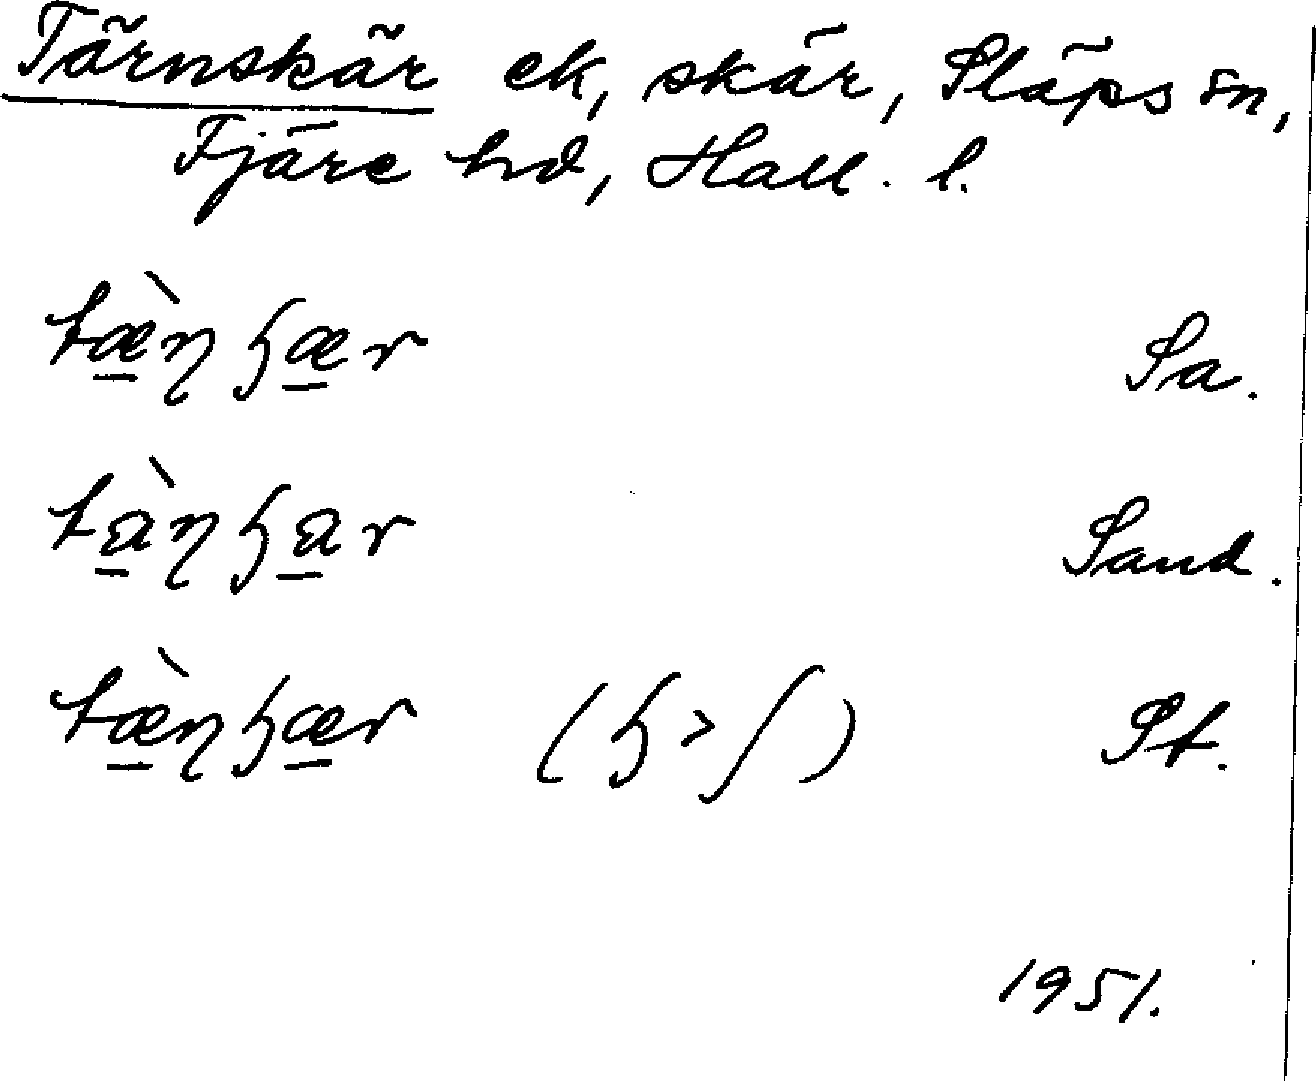 Tärnskär ek, skär, Släps sn,
Fjäre hd, Hall. l.
tæ̠̀ŋɧæ̠r Sa.
tà̠ŋɧa̠r Sand.
tæ̠̀ŋɧæ̠r (ɧ>ʃ) St.
1951.